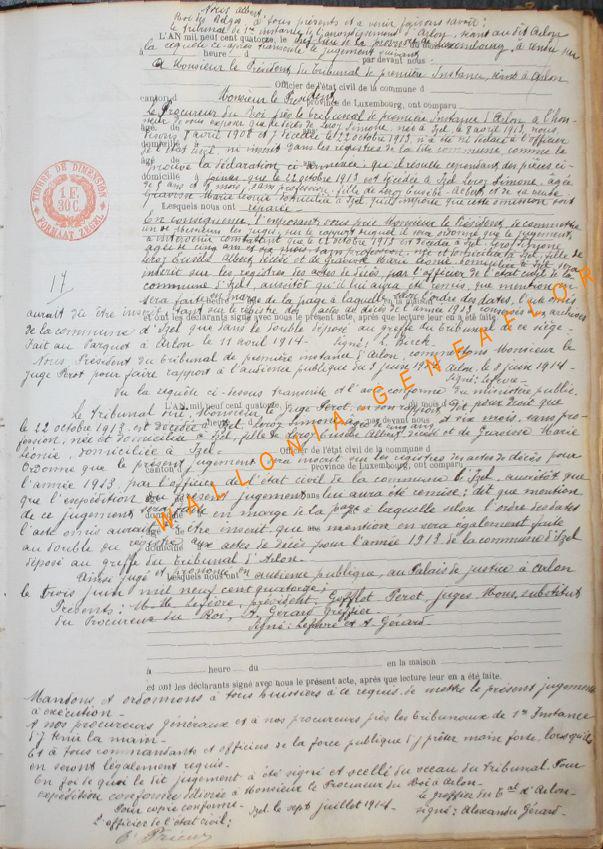 Nous Albert,
Roi des Belges à tous présents et à venir faisons savoir:
le tribunal de 1re instance de l'arrondissement d'Arlon, séant au dit Arlon
L'AN mil neuf cent quatorze, le
la requête ci-après transcrite le jugement suivant
heure du par devant nous
A Monsieur le Président du tribunal de première Instance, séant à Arlon
Officier de l'état civil de la commune d
Monsieur le Président
canton d province de Luxembourg, ont comparu
Le Procureur du Roi près le tribunal de première Instance d'Arlon a l'hon-
neur de vous exposer que de Leroy Simone, née à Izel, le 8 avril 1913,
8 avril 1908 et décédée le 22 octobre 1913 n'a été ni déclaré à l'officier
de l'état civil, ni inscrit dans les registres de la dite commune comme le
prouve la déclaration ci-annexée; qu'il résulte cependant des pièces ci-
jointes que le 22 octobre 1913 est décédée à Izel Leroy Simone, âgée
de 5 ans et 6 mois, sans profession, fille de Leroy Eusèbe-Albert, et de
Marie domiciliée à Izel, qu'il importe que cette omission soit
Lesquels nous ont réparée
TIMBRE DE DIMENSION
1 F.
30 C.
FORMAAT ZEGEL
En conséquence, l'exposant vous prie Monsieur le Président, de commettre
un de Messieurs les juges, sur le rapport duquel il sera ordonné que le jugement
à intervenir constatant que le 22 octobre 1913 est décédée à Izel Leroy Simone,
âgée de cinq ans et six mois, sans profession, née et domiciliée à Izel, fille de
Leroy Eusèbe Albert, décédé et de Marie Léonie domiciliée à Izel, sera
inscrit sur les registres des actes de décès, par l'officier de l'état civil de la
commune d'Izel, aussitôt qu'il lui aura été remis, que mention en
17
sera faite en marge de la page à laquelle selon l'ordre des dates, l'acte omis
aurait dû être inscrit, tant sur le registre des actes de décès de l'année 1913 conservé aux archives
et ont les déclarants signé avec nous le présent acte, après que lecture leur en a été faite.
de la commune d'Izel que dans le double déposé au greffe du tribunal de ce siège.
Fait au Parquet à Arlon le 11 avril 1914 - signé: L. Birck.
Nous, Président du tribunal de première instance d'Arlon, commettons Monsieur le
juge Perot pour faire rapport à l'audience publique du 3 juin 1914 - Arlon, le 3 juin 1914 -
signé: Lefèvre -
Vu la requête ci-dessus transcrite et l'avis conforme du ministère public.
L'AN mil neuf cent quatorze, le
Le tribunal ouï Monsieur le Juge Perot, en son rapport,
le 22 octobre 1913, est décédée à Izel Leroy Simone âgée de cinq ans et six mois, sans pro-
fession, née et domiciliée à Izel, fille de Leroy Eusèbe Albert, décédé et de Marie
Officier de l'état civil de la commune d
Léonie, domiciliée à Izel.
province de Luxembourg, ont comparu
Ordonne que le présent jugement sera inscrit sur les registres des actes de décès pour
l'année 1913, par l'officier de l'état civil de la commune d'Izel, aussitôt que
que l'expédition du présent jugement lui aura été remise; dit que mention
de ce jugement sera faite en marge de la page à laquelle selon l'ordre des dates
l'acte omis aurait dû être inscrit, que mention en sera également faite
au double du registre aux actes de décès pour l'année 1913 de la commune d'Izel
déposé au greffe du tribunal d'Arlon.
Ainsi jugé et prononcé en audience publique, au Palais de justice à Arlon
Lesquels nous ont
le trois juin mil neuf cent quatorze;
Présents: M.M. Lefèvre, président, Gofflot, Perot, juges, Nous, substitut
du Procureur du Roi, A. Gérard Greffier.
Signé: Lefèvre et A Gérard.
à heure du en la maison
et ont les déclarants signé avec nous le présent acte, après que lecture leur en a été faite.
Mandons et ordonnons à tous huissiers à ce requis de mettre le présent jugement
à exécution -
A nos procureurs généraux et à nos procureurs près les tribunaux de 1re Instance
d'y tenir la main -
Et à tous commandants et officiers de la force publique d'y prêter main forte, lorsqu'ils
en seront légalement requis -
En foi de quoi le dit jugement a été signé et scellé du sceau du tribunal. Pour
expédition conforme délivrée à Monsieur le Procureur du Roi à Arlon -
Pour copie conforme - le greffier du Tal d'Arlon -
Izel le sept juillet 1914 - signé: Alexandre Gérard -
L'officier de l'état civil;
WALLONIA GENEAFLOR